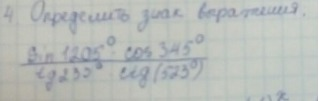 4. Определить знак выражения.
sin 1205° · cos 345°
tg 237° ctg (523°)